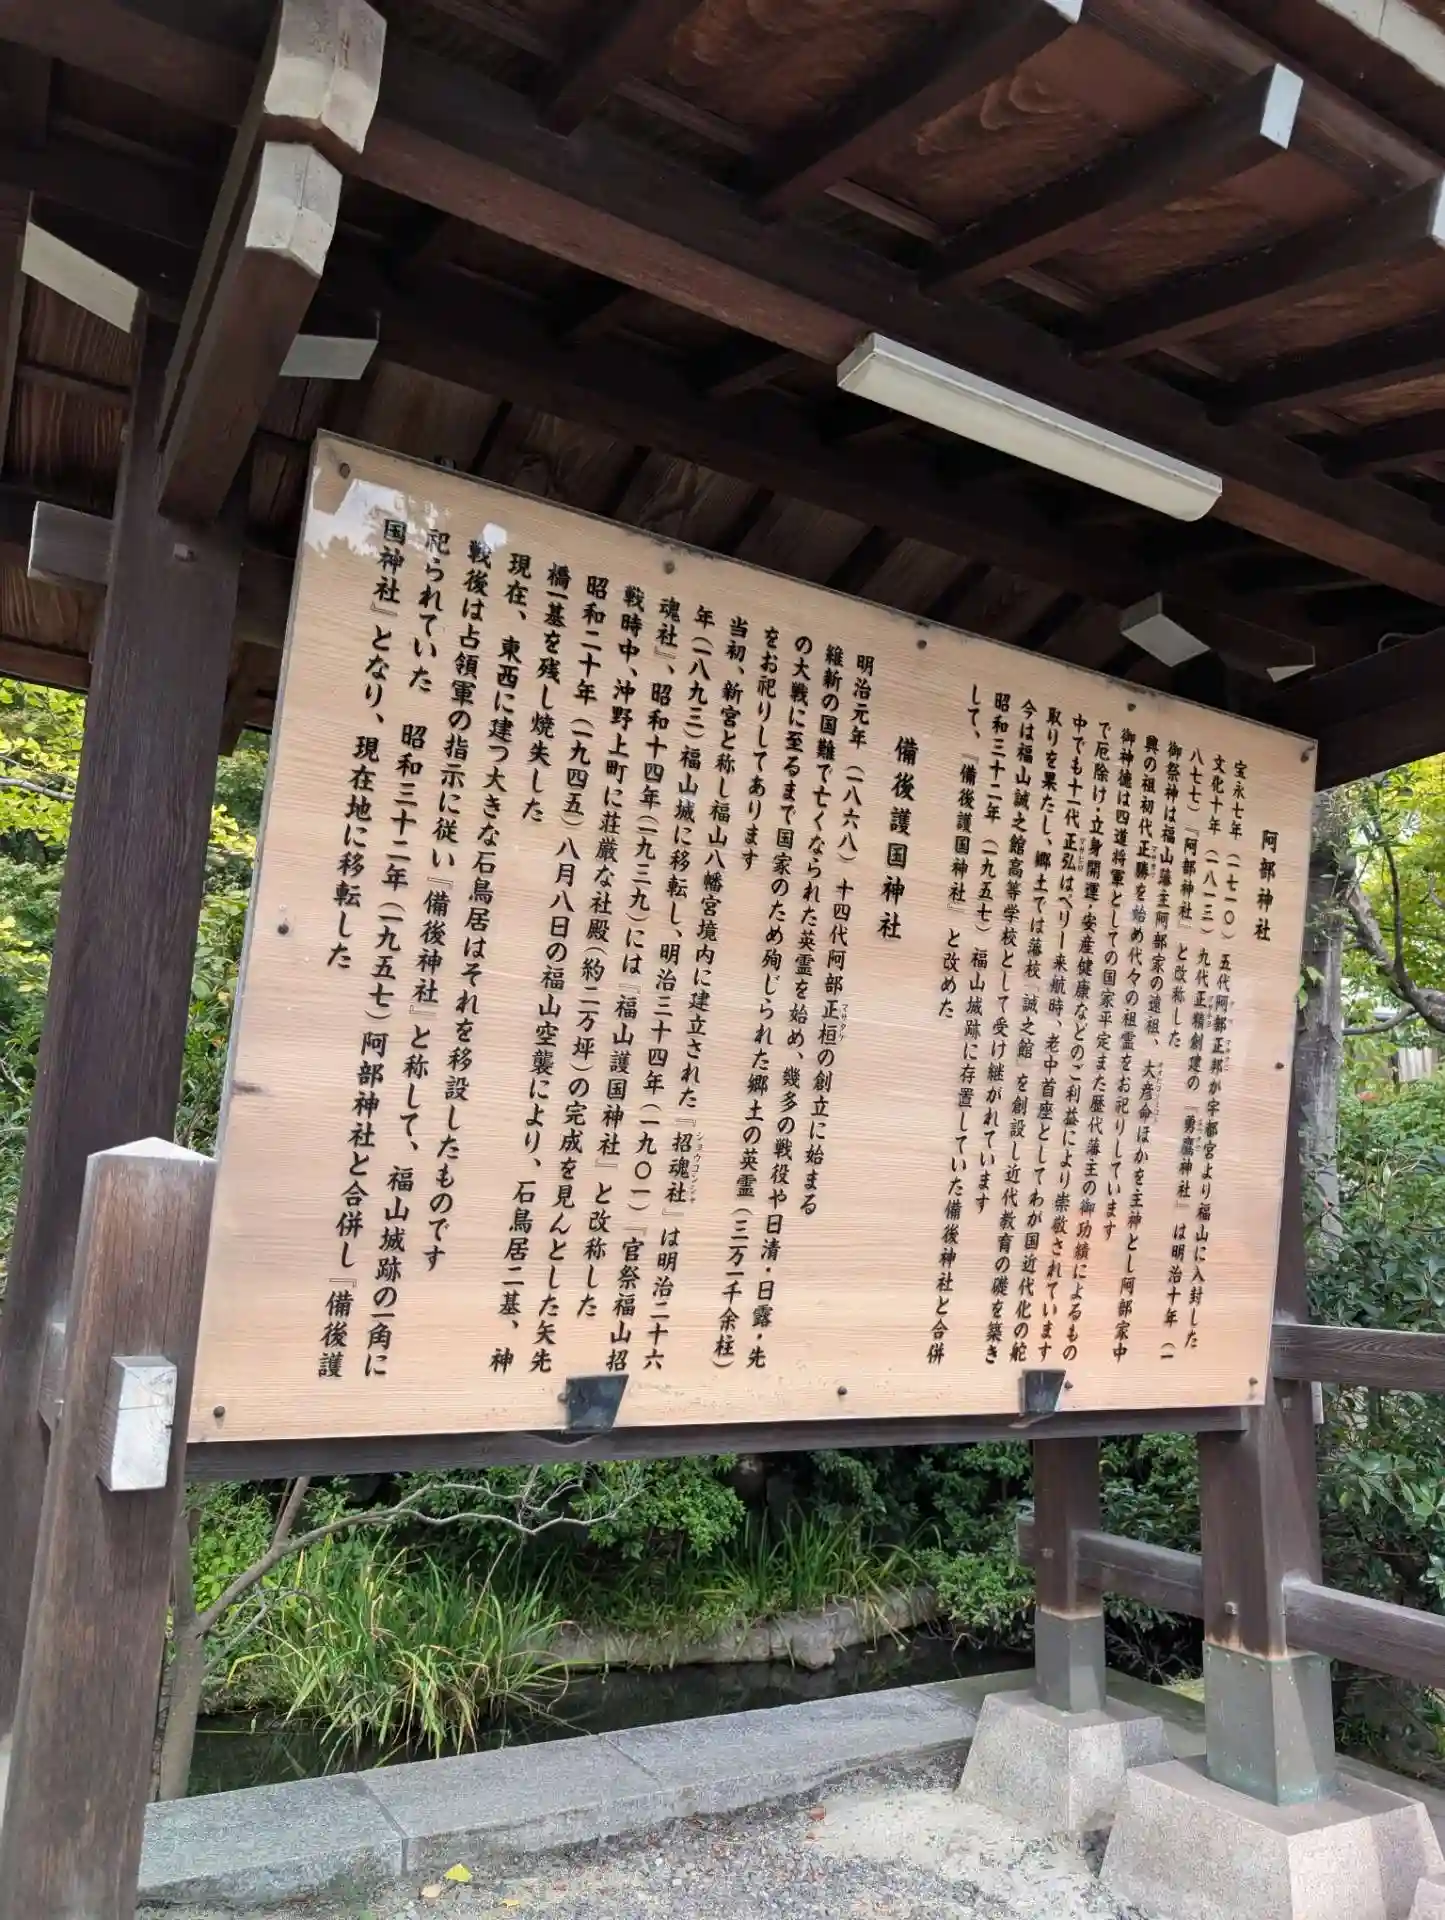 阿部神社
宝永七年(一七一〇)五代阿部正邦が宇都宮より福山に入封した
文化十年(一八一三)九代正精創建の『勇鷹神社』は明治十年(一
八七七)『阿部神社』と改称した
御祭神は福山藩主阿部家の遠祖、大彦命ほかを主神とし阿部家中
興の祖初代正勝を始め代々の祖霊をお祀りしています
御神徳は四道将軍としての国家平定また歴代藩主の御功績によるもの
で厄除け・立身開運・安産健康などのご利益により崇敬されています
中でも十一代正弘はペリー来航時、老中首座としてわが国近代化の舵
取りを果たし、郷土では藩校「誠之館」を創設し近代教育の礎を築き
今は福山誠之館高等学校として受け継がれています
昭和三十二年(一九五七)福山城跡に存置していた備後神社と合併
して、『備後護国神社』と改めた
備後護国神社
明治元年(一八六八)十四代阿部正桓の創立に始まる
維新の国難で亡くなられた英霊を始め、幾多の戦役や日清・日露・先
の大戦に至るまで国家のため殉じられた郷土の英霊(三万一千余柱)
をお祀りしてあります
当初、新宮と称し福山八幡宮境内に建立された『招魂社』は明治二十六
年(一八九三)福山城に移転し、明治三十四年(一九〇一)『官祭福山招
魂社』、昭和十四年(一九三九)には『福山護国神社』と改称した
戦時中、沖野上町に荘厳な社殿(約二万坪)の完成を見んとした矢先
昭和二十年(一九四五)八月八日の福山空襲により、石鳥居二基、神
橋一基を残し焼失した
現在、東西に建つ大きな石鳥居はそれを移設したものです
戦後は占領軍の指示に従い『備後神社』と称して、福山城跡の一角に
祀られていた 昭和三十二年(一九五七)阿部神社と合併し『備後護
国神社』となり、現在地に移転した